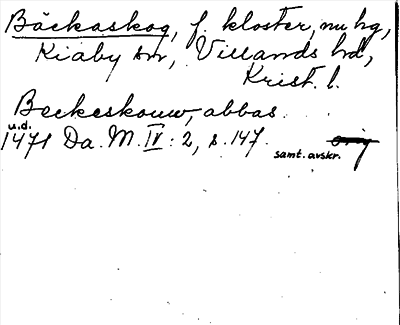 Bäckaskog, f. kloster, nu hg,
Kiaby sn, Villands hd,
Krist. l.
Beckeskouw, abbas.
u.d.
1471 Da. M. IV: 2, s. 147. orig
samt. avskr.